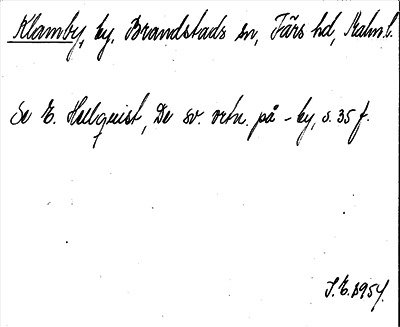 Klamby, by, Brandstads sn, Färs hd, Malm. l.
Se E. Hellquist, De sv. ortn. på -by, s. 35 f.
I. E. 1954.